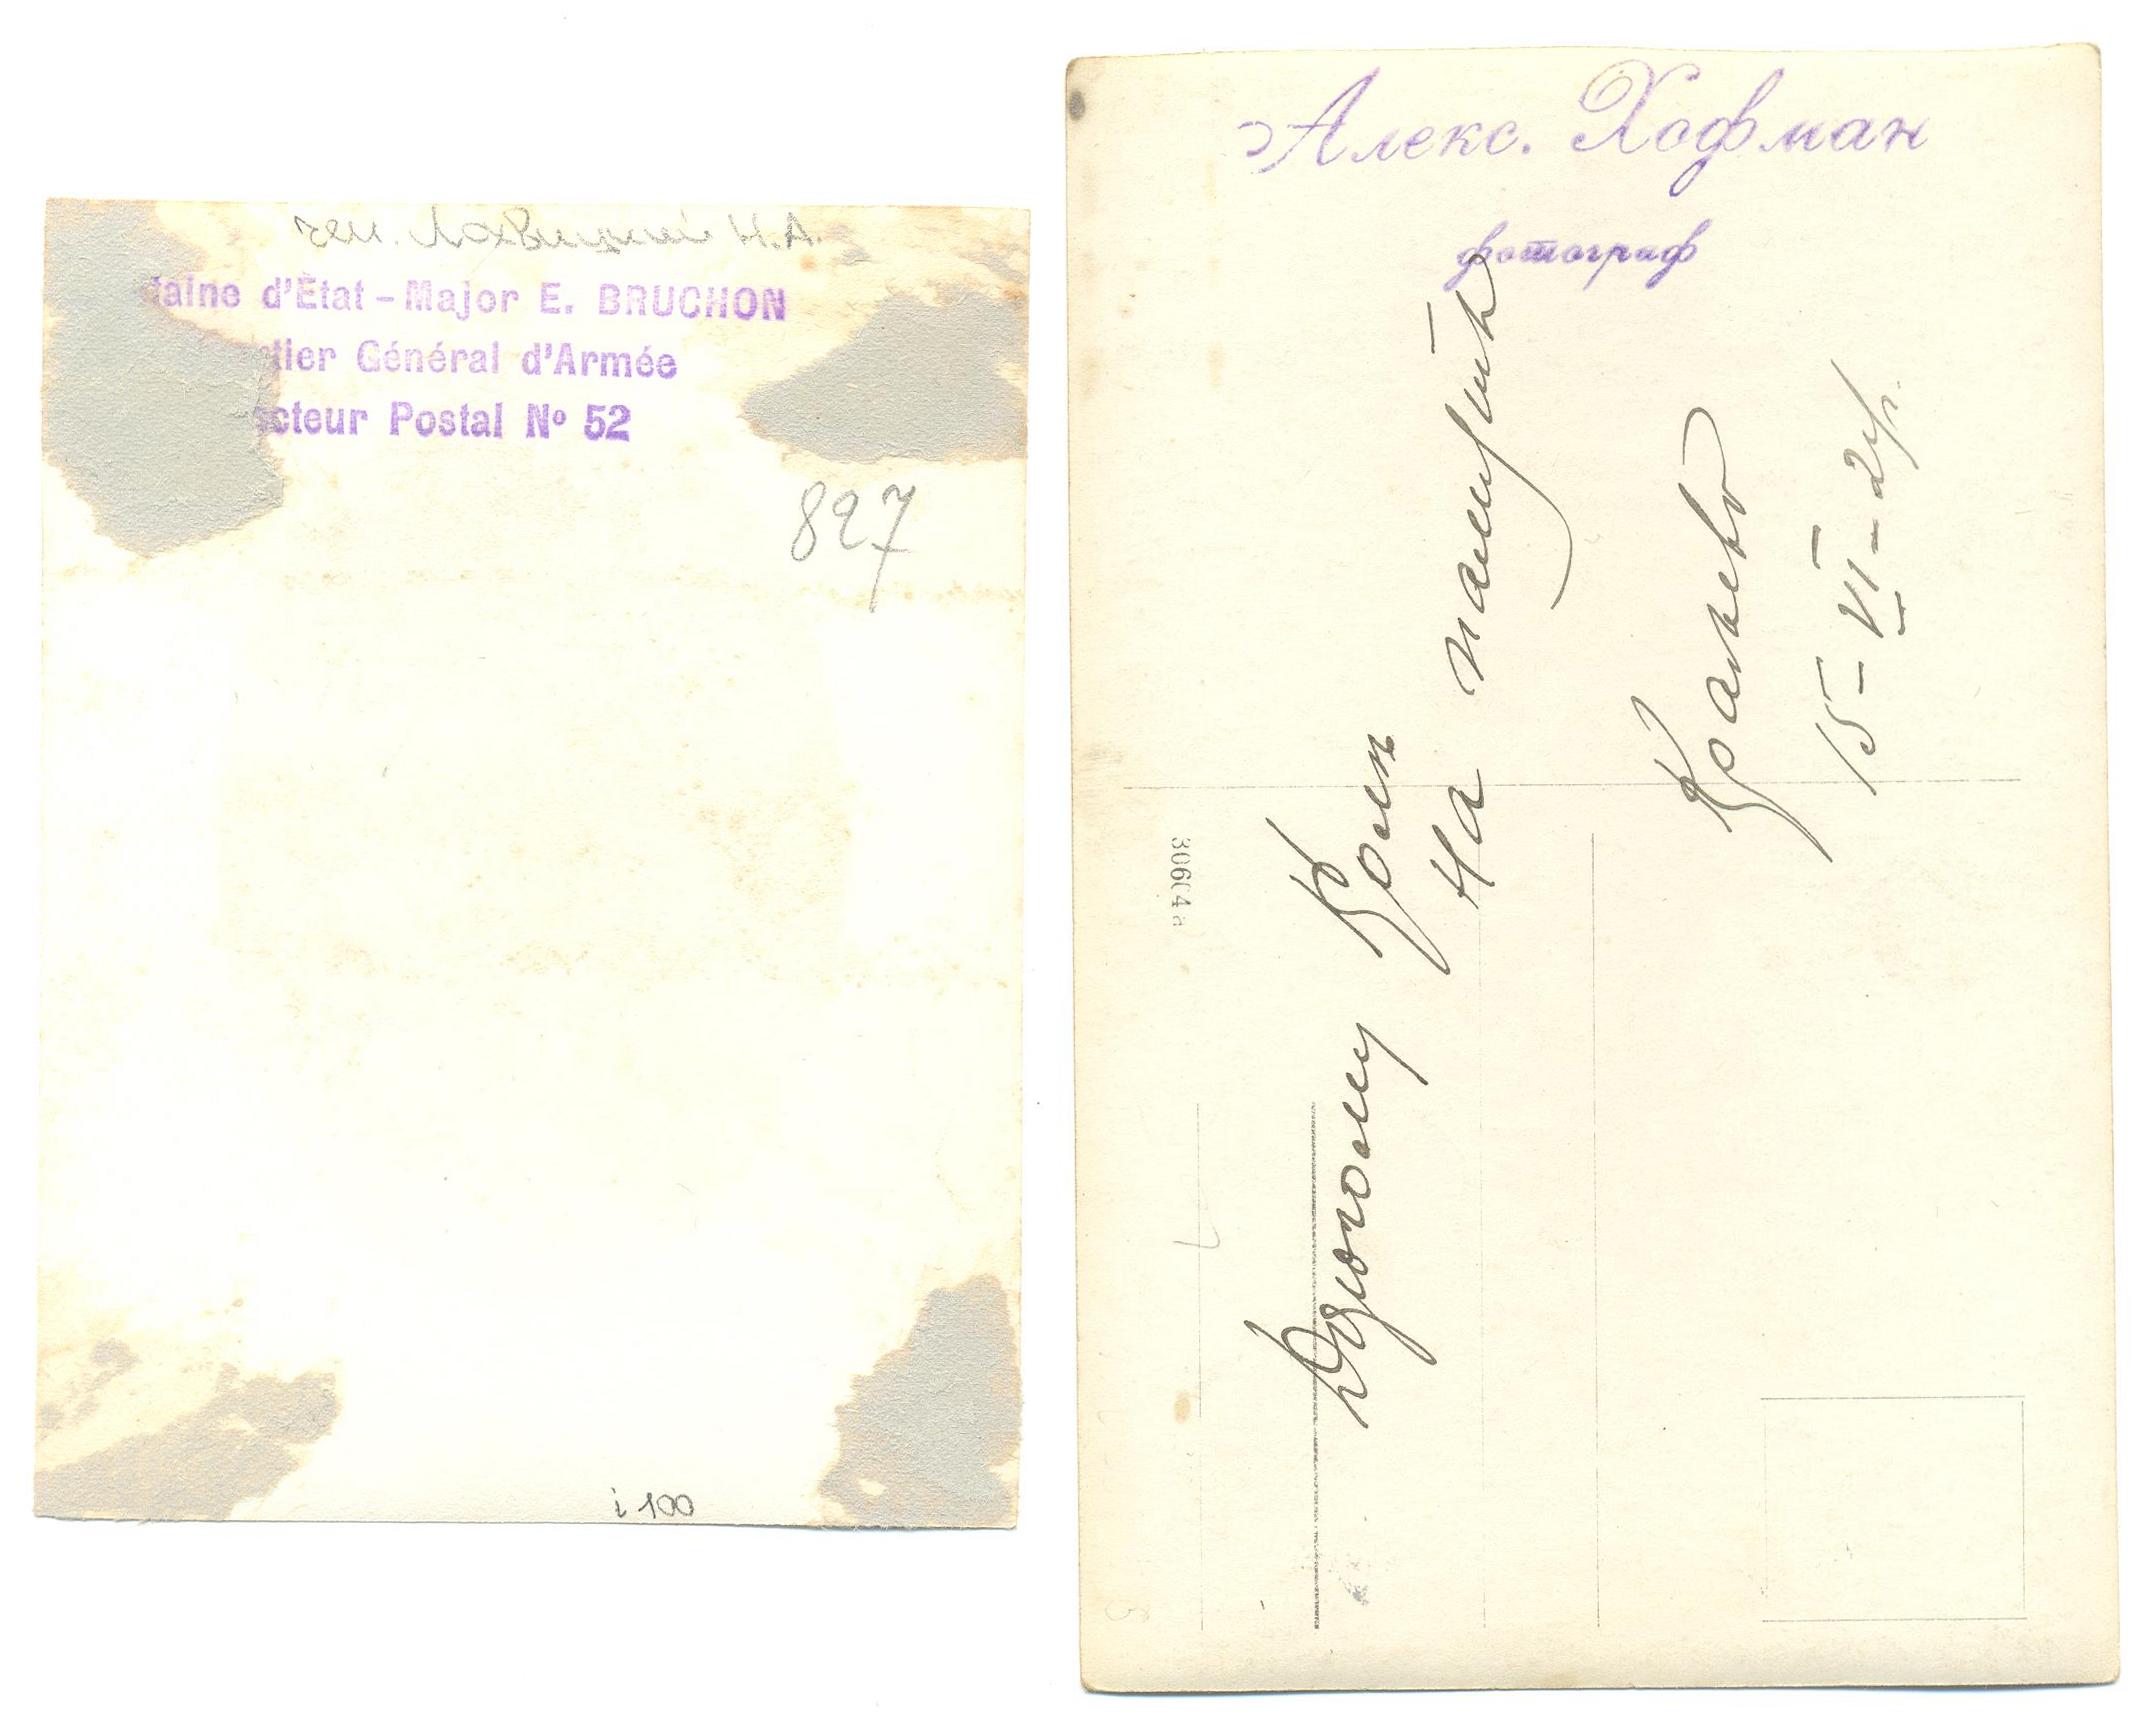 ген. Лохвицкий Н.А.
taine d'État - Major E. BRUCHON
tier Général d'Armée
cteur Postal Nº 52
827
i 100
Алекс. Хофман
фотограф
30604 a
На память
Кральево
15-VI-24г.